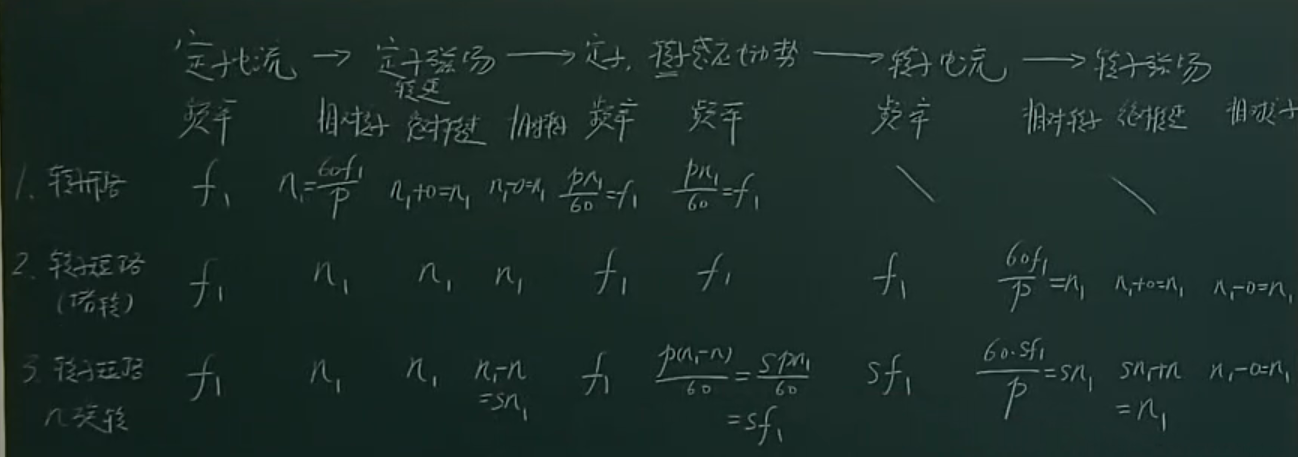 定子电流 → 定子磁场 → 定子、转子感应电动势 → 转子电流 → 转子磁场
转速
频率 相对定子 绝对转速 相对转子 频率 频率 频率 相对转子 绝对转速 相对定子
1. 转子开路 f₁ n₁=60f₁/p n₁+0=n₁ n₁-0=n₁ pn₁/60=f₁ pn₁/60=f₁ \ \
2. 转子短路 f₁ n₁ n₁ n₁ f₁ f₁ f₁ 60f₁/p=n₁ n₁+0=n₁ n₁-0=n₁
(堵转)
3. 转子短路 f₁ n₁ n₁ n₁-n f₁ p(n₁-n)/60=spn₁/60 sf₁ 60·sf₁/p=sn₁ sn₁+n n₁-0=n₁
=sn₁ =sf₁ =n₁
n旋转